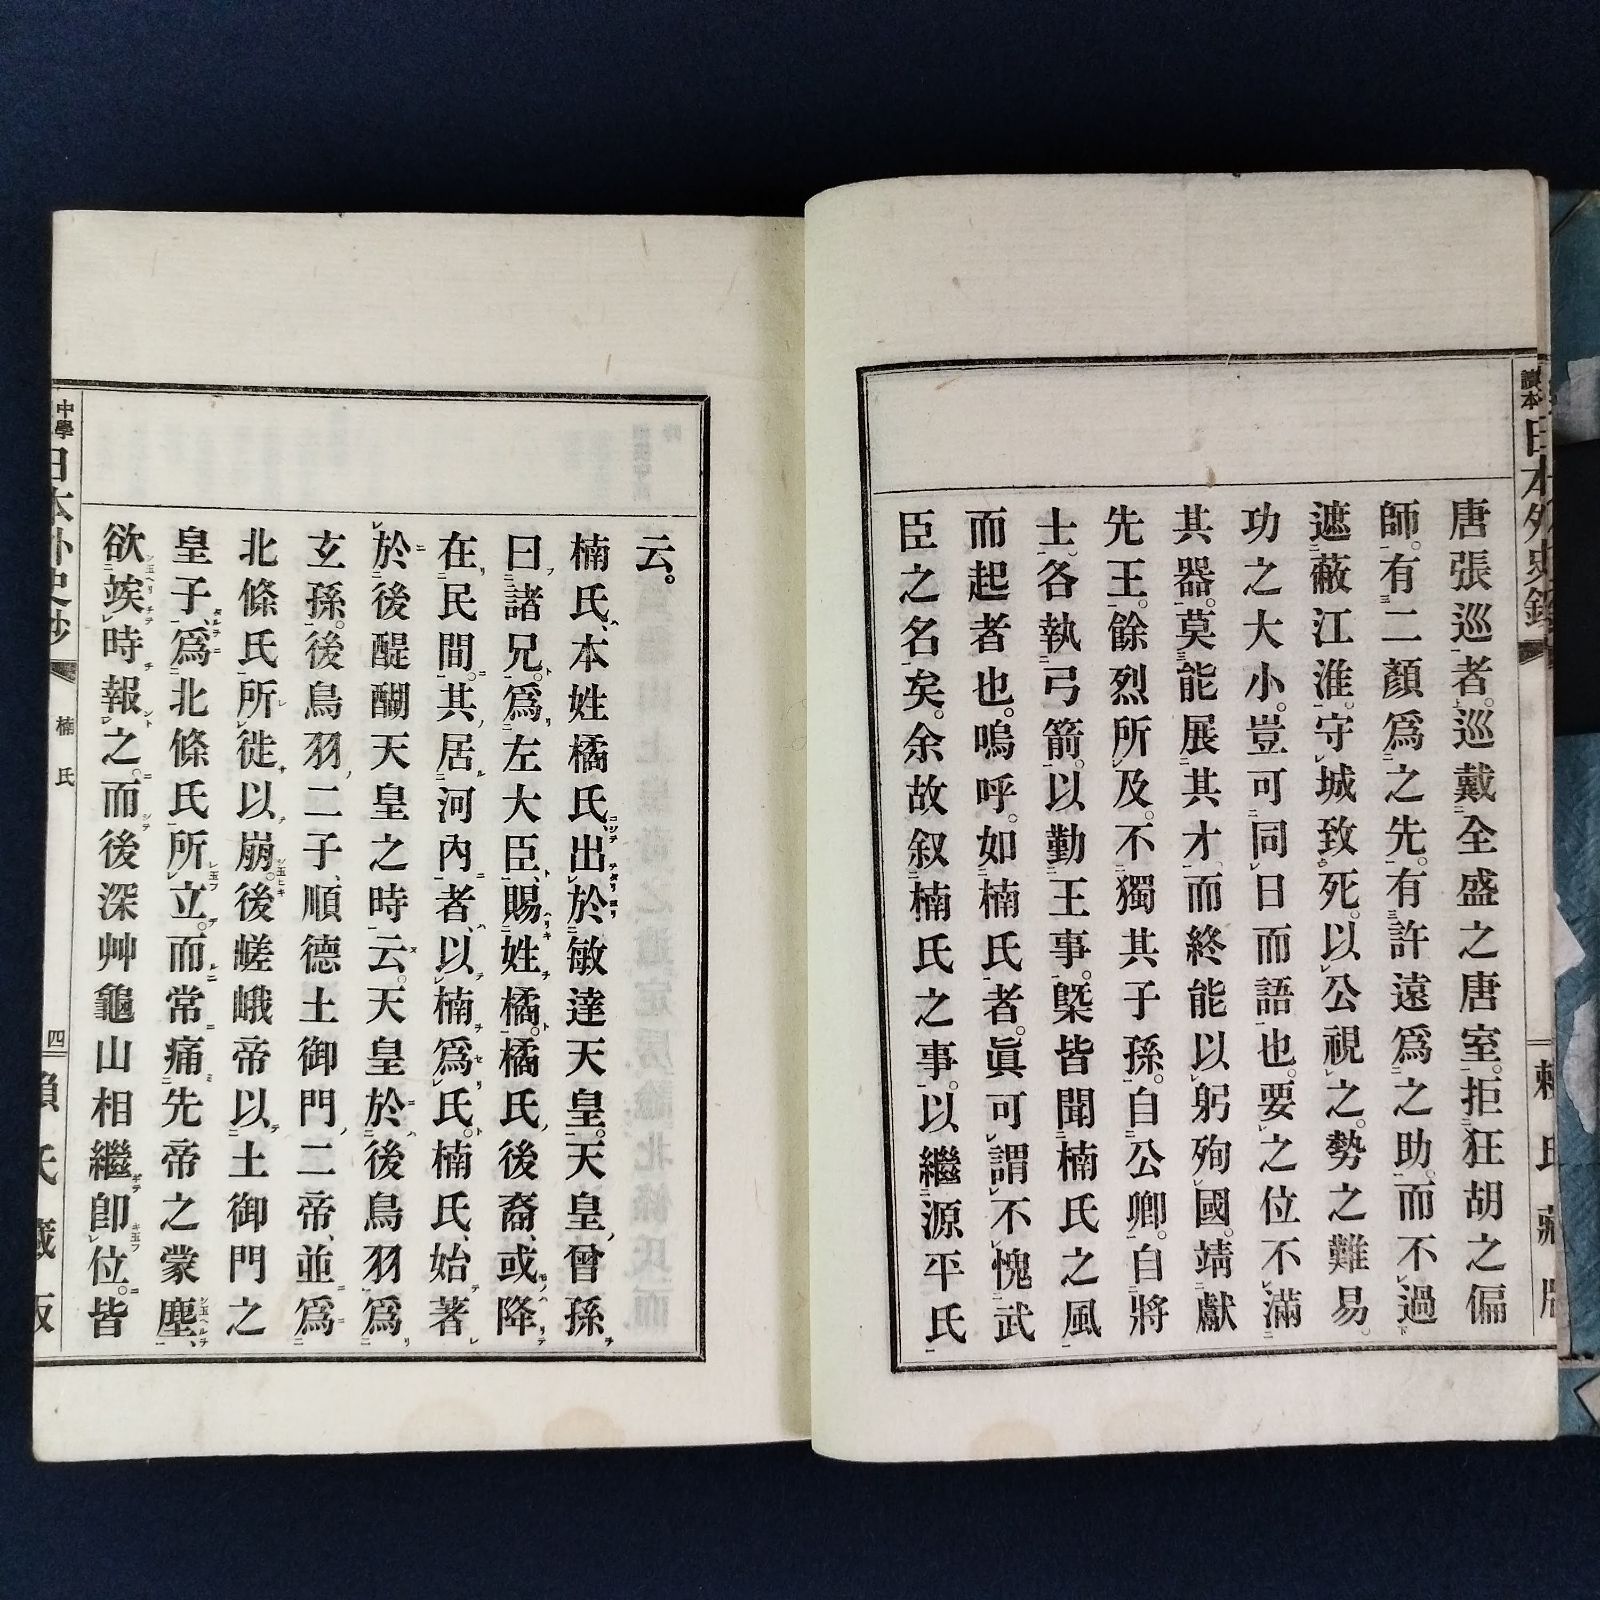 讀本
日本外史鈔
賴氏藏版
唐張巡者。巡戴全盛之唐室。拒狂胡之偏
師。有二顏爲之先。有許遠爲之助。而不過
遮蔽江淮。守城致死。以公視之。勢之難易。
功之大小。豈可同日而語也。要之位不滿
其器。莫能展其才。而終能以躬殉國。靖獻
先王。餘烈所及。不獨其子孫。自公卿。自將
士。各執弓箭。以勤王事。槩皆聞楠氏之風
而起者也。嗚呼。如楠氏者。眞可謂不愧武
臣之名矣。余故叙楠氏之事。以繼源平氏
云。
楠氏、本姓橘氏、出於敏達天皇。天皇、曾孫
曰諸兄。爲左大臣、賜姓橘。橘氏、後裔、或降
在民間。其居河內者、以楠爲氏。楠氏、始著
於後醍醐天皇之時云。天皇於後鳥羽爲
玄孫。後鳥羽、二子、順德土御門、二帝、並爲
北條氏所徙以崩。後嵯峨帝以土御門之
皇子、爲北條氏所立。而常痛先帝之蒙塵、
欲竢時報之。而後深艸龜山相繼卽位。皆
中學
日本外史鈔
楠氏
四
賴氏藏版